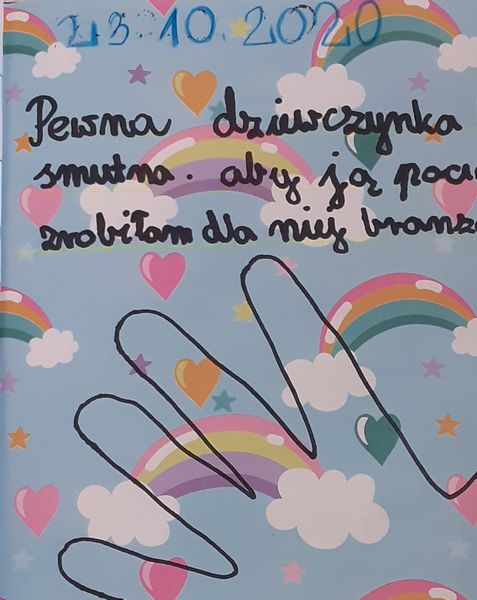 23.10.2020
Pewna dziewczynka
smutna. aby ją poci
zrobiłam dla niej branso